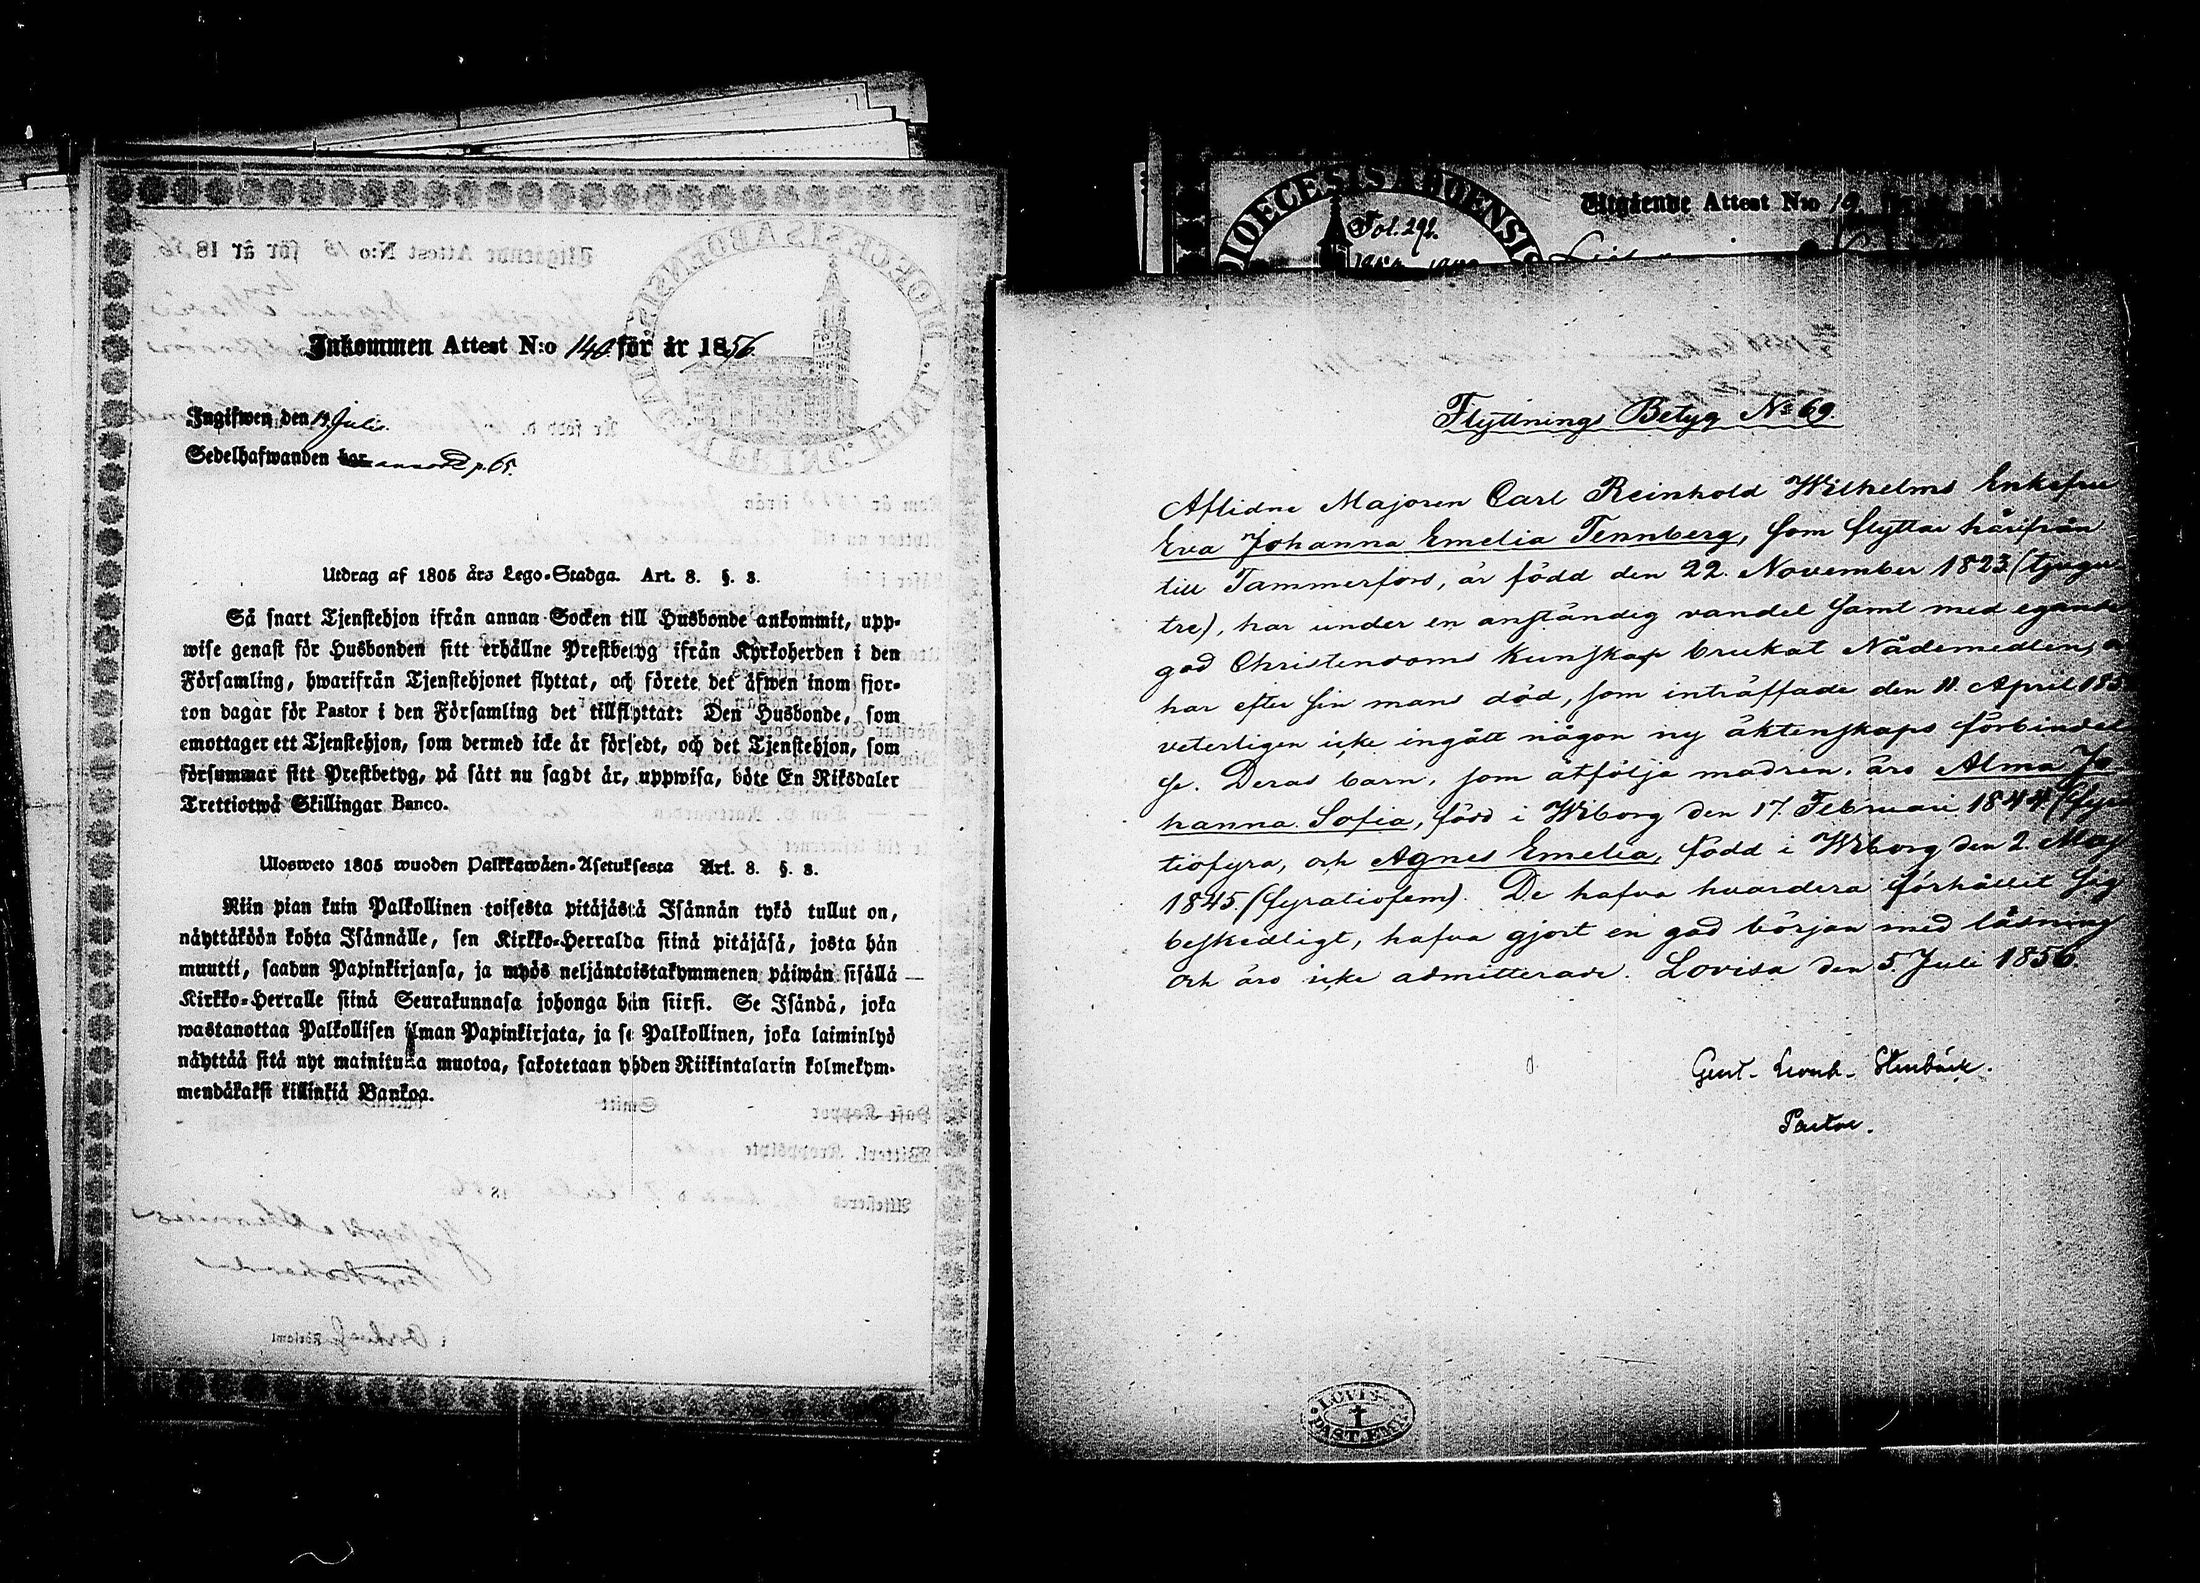 Inkommen Attest N:o 140 för år 1856.
Ingifwen den 14 Julii.
Sedelhafwanden har annord p. 65.
Utdrag af 1805 års Lego-Stadga. Art. 8. §. 3.
Så snart Tjenstehjon ifrån annan Socken till Husbonde ankommit, upp-
wise genast för Husbonden sitt erhållne Prestbetyg ifrån Kyrkoherden i den
Församling, hwarifrån Tjenstehjonet flyttat, och förete det äfwen inom fjor-
ton dagar för Pastor i den Församling det tillflyttat: Den Husbonde, som
emottager ett Tjenstehjon, som dermed icke är försedt, och det Tjenstehjon, som
försummar sitt Prestbetyg, på sätt nu sagdt är, uppwisa, böte En Riksdaler
Trettiotwå Skillingar Banco.
Ulosweto 1805 wuoden Palkkawäen-Asetuksesta Art. 8. §. 3.
Niin pian kuin Palkollinen toisesta pitäjästä Isännän tykö tullut on,
näyttäköön kohta Isännälle, sen Kirkko-Herralda siinä pitäjäsä, josta hän
muutti, saadun Papinkirjansa, ja myös neljäntoistakymmenen päiwän sisällä
Kirkko-Herralle siinä Seurakunnasa johonga hän siirsi. Se Isändä, joka
wastanottaa Palkollisen ilman Papinkirjata, ja se Palkollinen, joka laiminlyö
näyttää sitä nyt mainitulla muotoa, sakotetaan yhden Riikintalarin kolmekym-
mendäkaksi killinkiä Bankoa.
DIOECESIS ABOENSIS
Fol. 292.
Utgående Attest N:o 19
Flyttnings Betyg No 69.
Aflidne Majoren Carl Reinhold Wilhelms Enkefru
Eva Johanna Emelia Tennberg, som flyttar härifrån
till Tammerfors, är född den 22 November 1823 (tjugu
tre), har under en anständig vandel samt med egande
god Christendoms kunskap brukat Nådemedlen,
har efter sin mans död, som inträffade den 11. April 185
veterligen icke ingått någon ny äktenskaps förbindel
se. Deras barn, som åtfölja modren, äro Alma Jo
hanna Sofia, född i Wiborg den 17. Februari 1844 (fyra
tiofyra, och Agnes Emelia, född i Wiborg den 2. Maj
1845. (fyratiofem). De hafva hvardera förhållit sig
beskedligt, hafva gjort en god början med läsning
och äro icke admitterade. Lovisa den 5. Juli 1856.
Gust. Leonh. Stenbäck.
Pastor.
LOVIS.
PAST. EMB.